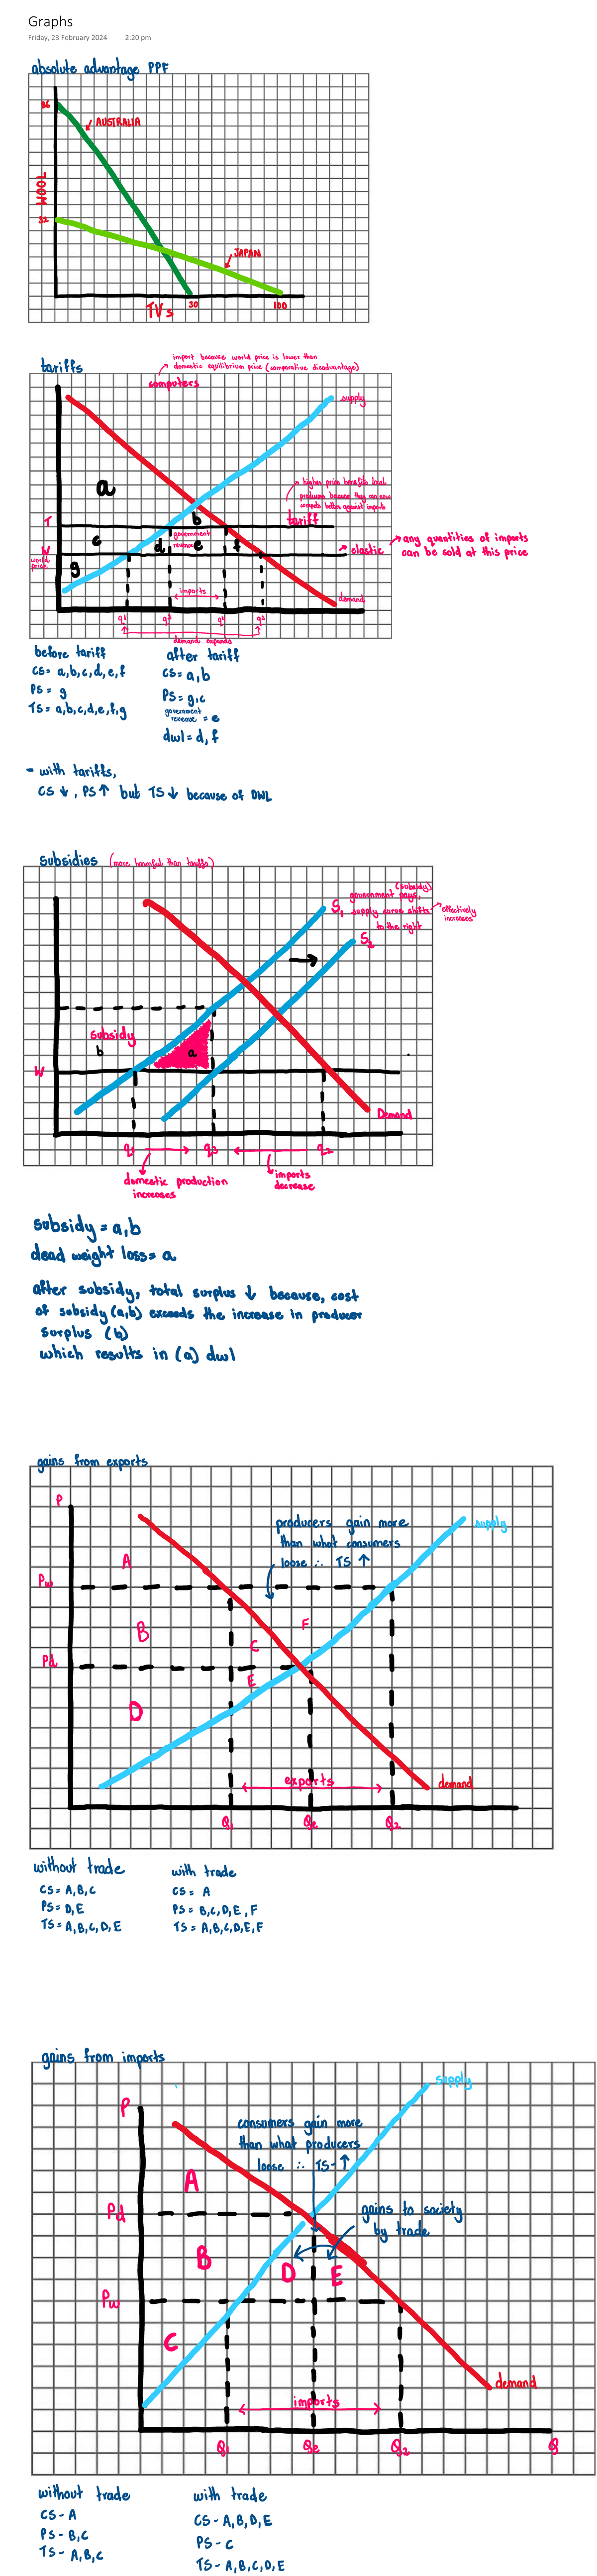 Graphs
Friday, 23 February 2024 2:20 pm
absolute advantage PPF
86
AUSTRALIA
WOOL
32
JAPAN
TVs
30
100
tariffs
import because world price is lower than
domestic equilibrium price (comparative disadvantage)
computers
supply
a
higher price benefits local
producers because they can now
compete better against imports
T
b
tariff
c
government
revenue
d
e
f
W
world
price
elastic
any quantities of imports
can be sold at this price
g
imports
demand
q1
q3
q4
q2
demand expands
before tariff
CS = a,b,c,d,e,f
PS = g
TS = a,b,c,d,e,f,g
after tariff
CS = a,b
PS = g,c
government
revenue = e
dwl = d, f
- with tariffs,
CS ↓, PS ↑ but TS ↓ because of DWL
subsidies (more harmful than tariffs)
(subsidy)
government pays,
supply curve shifts
to the right
effectively
increases
S1
S2
subsidy
b
a
W
Demand
q1
q3
q2
domestic production
increases
imports
decrease
subsidy = a,b
dead weight loss = a
after subsidy, total surplus ↓ because, cost
of subsidy (a,b) exceeds the increase in producer
surplus (b)
which results in (a) dwl
gains from exports
P
producers gain more
than what consumers
loose ∴ TS ↑
supply
A
Pw
B
C
F
Pd
E
D
exports
demand
Q1
Qe
Q2
without trade
CS = A,B,C
PS = D,E
TS = A,B,C,D,E
with trade
CS = A
PS = B,C,D,E,F
TS = A,B,C,D,E,F
gains from imports
supply
P
consumers gain more
than what producers
loose ∴ TS - ↑
A
Pd
gains to society
by trade
B
D
E
Pw
C
demand
imports
Q1
Qe
Q2
Q
without trade
CS - A
PS - B,C
TS - A,B,C
with trade
CS - A,B,D,E
PS - C
TS - A,B,C,D,E